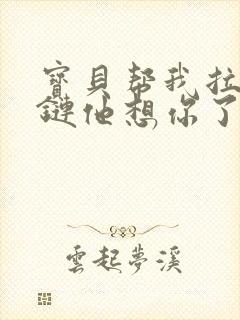 寶貝帮我拉
鏈他想你了
雲起夢溪